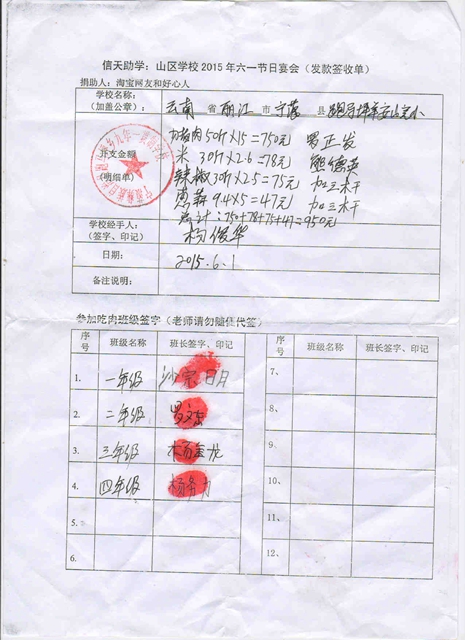 信天助学：山区学校2015年六一节日宴会（发款签收单）
捐助人：淘宝网友和好心人
学校名称：
（加盖公章）：
云南 省 丽江 市 宁蒗 县
开支金额
（明细单）
猪肉50斤×15=750元
米 30斤×2.6=78元
辣椒30斤×2.5=75元
9.4×5=47元
总计：750+78+75+47=950元
学校经手人：
（签字、印记）
杨俊华
日期：
2015.6.1
备注说明：
参加吃肉班级签字（老师请勿随便代签）
序号 班级名称 班长签字、印记 序号 班级名称 班长签字、印记
1. 一年级 7、
2. 二年级 8、
3. 三年级 杨金龙 9、
4. 四年级 10、
5. 11、
6. 12、